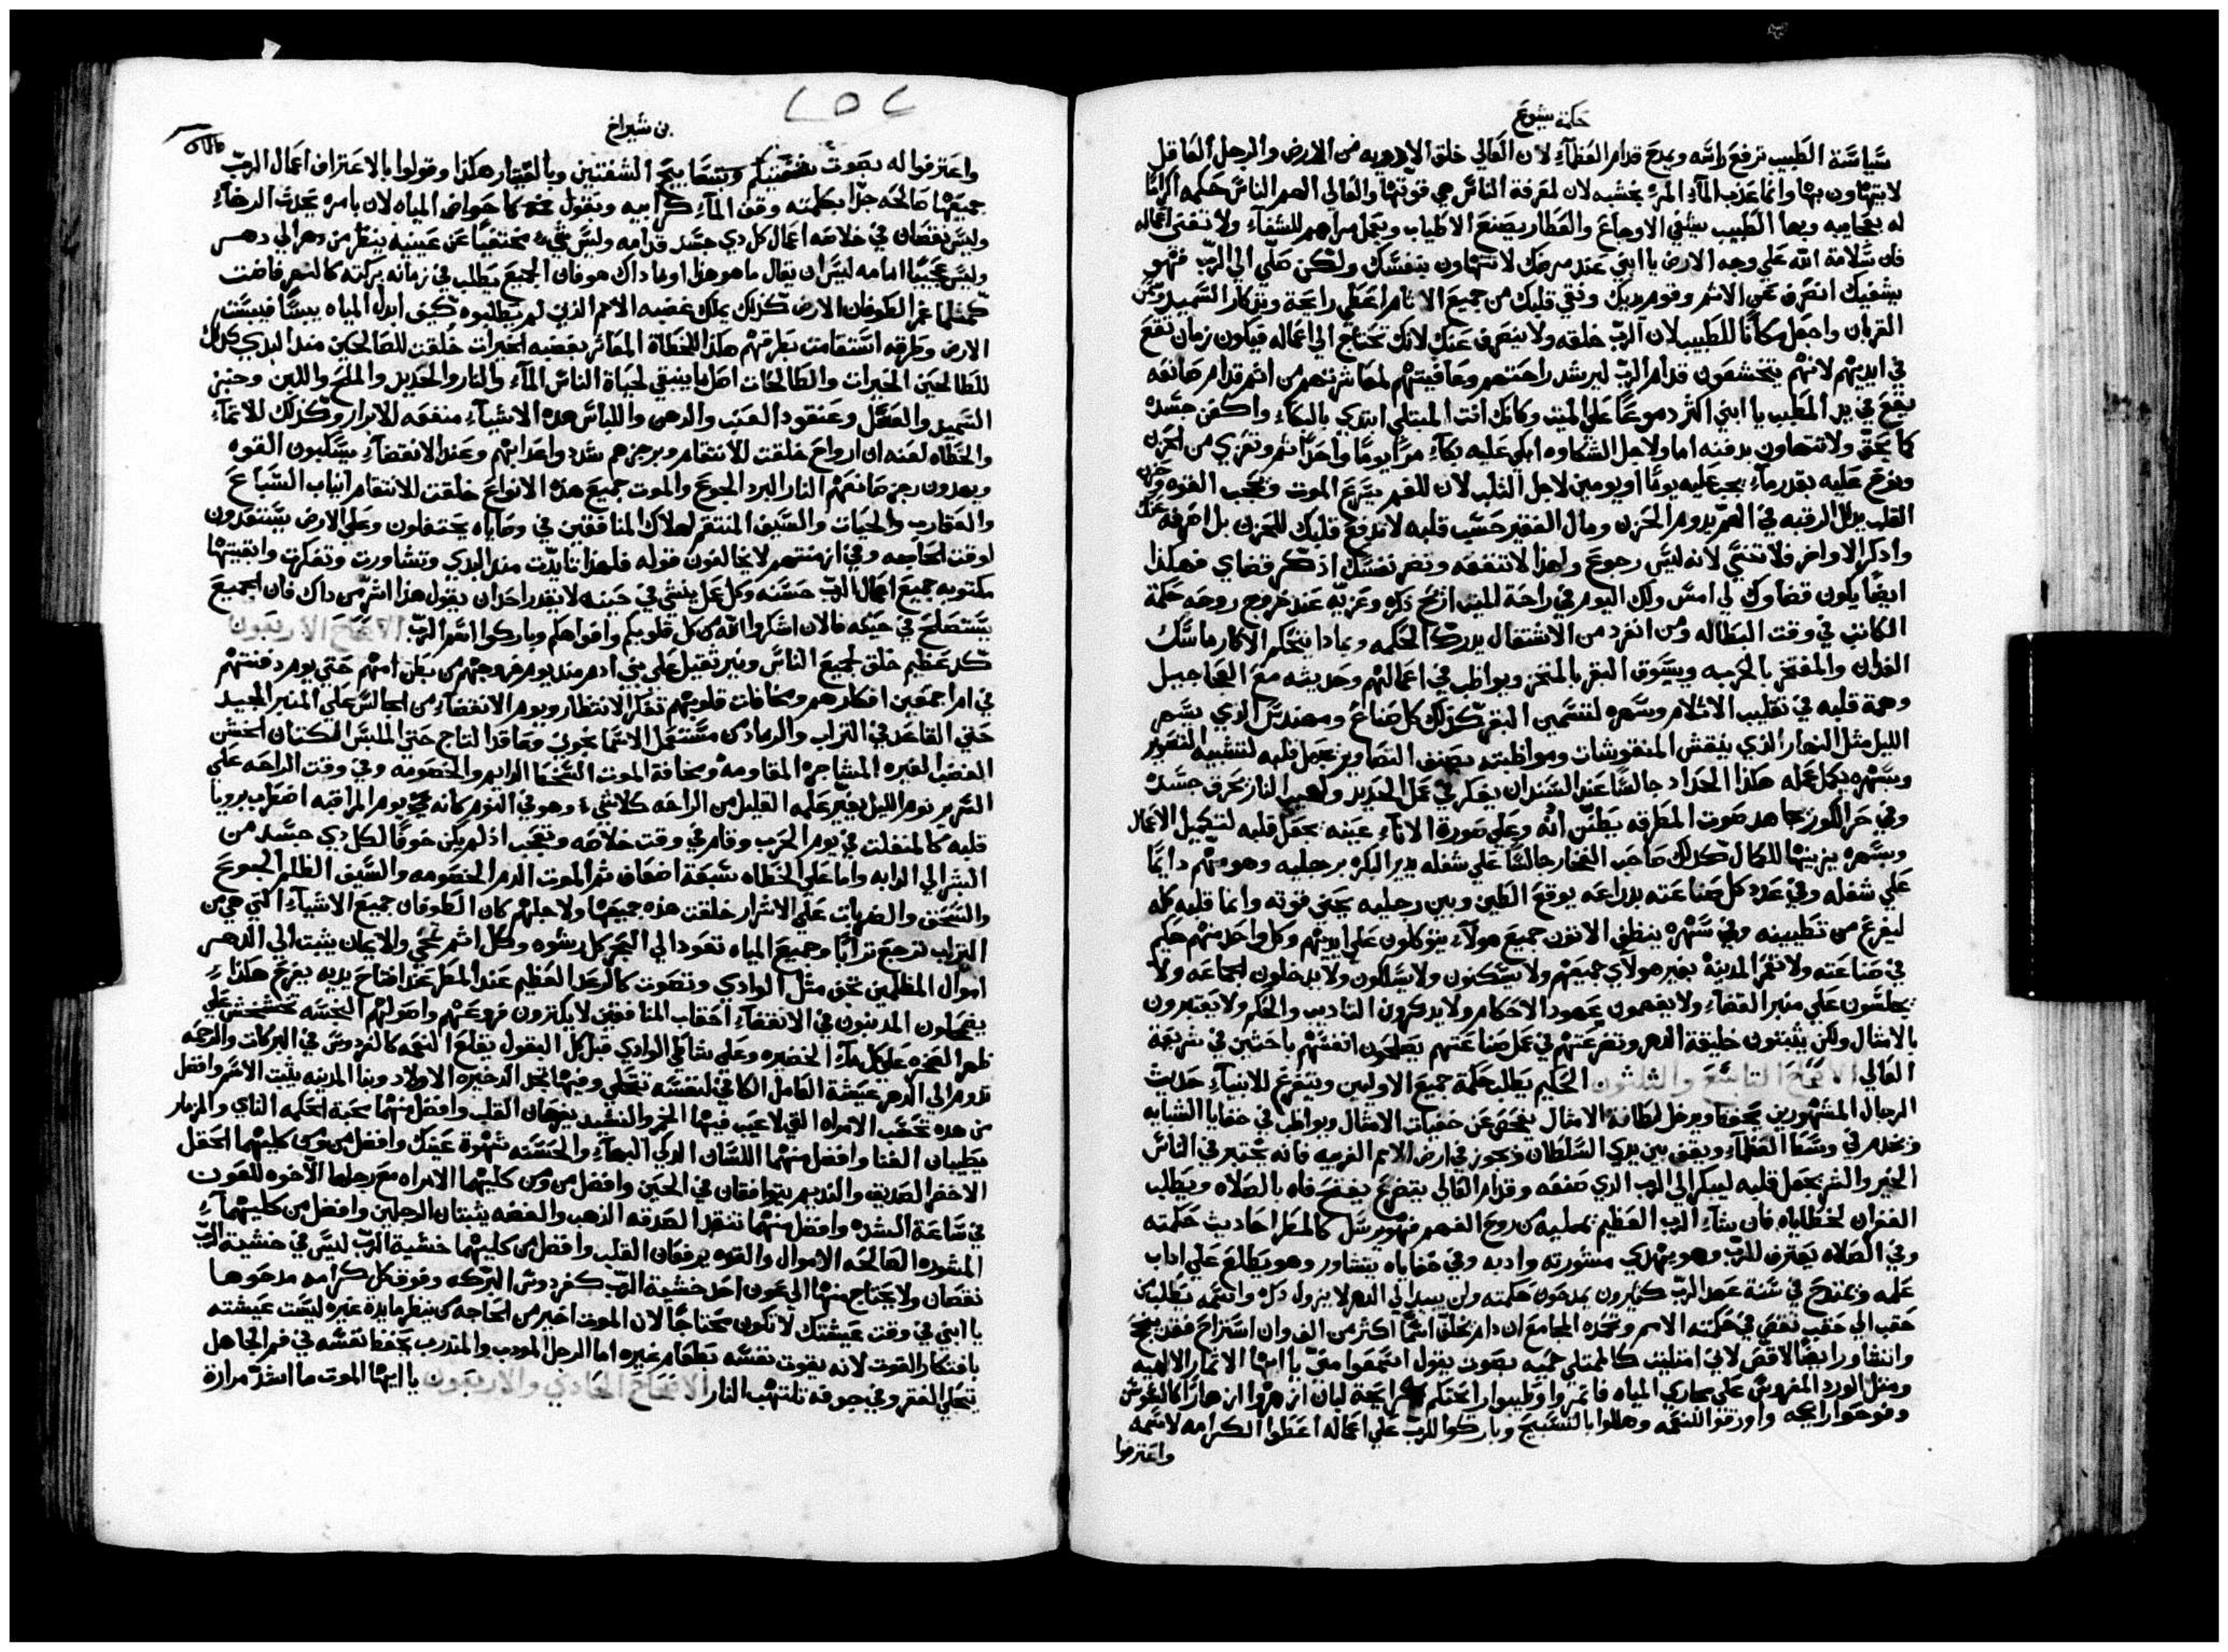 حكمة يشوع
سياسة الطبيب ترفع راسه ويمدح قدام العظمآء لان العالي خلق الادويه من الارض والرجل العاقل
لا يتهاون بها وانما عذب المآء المر بخشبه لان لمعرفة الناس هي قوتها والعالي الهم الناس حكمه اكراما
له بعجايبه وبها الطبيب يشفي الاوجاع والعطار يصنع الاطياب ويعمل مراهم للشفآء ولا تفنى اعماله
فان سلامة الله علي وجه الارض يا ابني عند مرضك لا تتهاون بنفسك ولكن صلي الي الرب فهو
يشفيك انصرف عن الاثم وقوم يديك ونقي قلبك من جميع الاثام اعطي رايحة وتذكار السميد
القربان واجعل مكانا للطبيب لان الرب خلقه ولا ينصرف عنك لانك تحتاج الي اعماله فيكون زمان تقع
في ايديهم لانهم يتخشعون قدام الرب ليرشد راحتهم وعافيتهم لمعاشرتهم من اثم قدام صانعه
يقع في يد الطبيب يا ابني اكثر دموعا علي الميت وكانك انت المبتلي ابتدي بالبكاء واكفن جسده
كما يحق ولا تتهاون بدفنه اما لاجل الشكاوه ابكي عليه بكآء مرا يوما واحدا ثم وتعزي من الحزن
القلب يذلل الرقبه في الهم يدوم الحزن ومال الفقير حسب قلبه لا تدفع قلبك للحزن بل اصرفه عنك
واذكر الاواخر فلا تنسي لانه ليس رجوع ولهذا لا تنفعه وتضر نفسك اذكر قضاي فهكذا
ايضا يكون قضاوك لي امس ولك اليوم في راحة الميت ازح ذكره وعزيه عند خروج روحه حكمة
الكاتب في وقت البطاله ومن انفرد من الاشتغال يدرك الحكمه وبماذا يتحكم الاكار ماسك
الفدان والمفتخر بالحربه ويسوق البقر بالمنخز ويواظب في اعمالهم وحديثه مع العجاجيل
وهمة قلبه في تقليب الاتلام وسهره لتسمين البقر كذلك كل صناع ومهندس الذي يسهر
الليل مثل النهار الذي ينقش المنقوشات ومواظبته تصنف التصاوير يجعل قلبه لتشبيه التصوير
وبسهره يكمل عمله هكذا الحداد جالسا عند السندان يفكر في عمل الحديد ولهيب النار يحرق جسده
وفي حر الكوز يجاهد صوت المطرقه يطنن اذنه وعلي صورة الاناء عينه يجعل قلبه لتكميل الاعمال
وبسهره يزينها للكمال كذلك صاحب الفخار جالسا علي شغله يدير البكره برجليه وهو مهتم دايما
علي شغله وفي عدد كل صناعته بذراعه يوقع الطين وبين رجليه يحني قوته وانما قلبه كله
ليفرغ من تطيينه وفي سهره ينظف الاتون جميع هولآء يتوكلون علي ايديهم وكل واحد منهم حكم
في صناعته ولا تعمر المدينة بغير هولاي جميعهم ولا يسكنون ولا يسلكون ولا يدخلون الجماعه ولا
يجلسون علي منبر القضآء ولا يفهمون عهود الاحكام ولا يذكرون التاديب والحكم ولا يعتبرون
بالامثال ولكن يثبتون خليقة الدهر وتضرعتهم في عمل صناعتهم يصلحون انفسهم باحثين في شريعة
العالي الاصحاح التاسع والثلثون الحكيم يطلب حكمة جميع الاولين ويتفرغ للانبيآء حديث
الرجال المشهورين يحفظ ويدخل لطانة الامثال يفحص عن خفيات الامثال ويواظب في خفايا الشبايه
ويخدم في وسط العظمآء ويقف بين يدي السلطان ويجوز في ارض الامم الغريبه فانه يختبر في الناس
الخير والشر يجعل قلبه ليبكر الي الرب الذي صنعه وقدام العالي يتضرع يفتح فاه بالصلاه ويطلب
الغفران لخطاياه فان شآء الرب العظيم يمليه من روح الفهم فهو يرسل كالمطر احاديث حكمته
وفي الصلاه يعترف للرب وهو يهدي مشورته وادبه وفي خفاياه يتشاور وهو يطلع علي اداب
علمه ويمتدح في سنة عهد الرب كثيرون يمدحون حكمته ولن يبيد الي الدهر لا يزول ذكره واسمه يطلب من
حقب الي حقب تقص في حكمته الامم وتحده المجامع ان دام يخلف اسما اكثر من الف وان استراح فقد ينجح
واتشاور ايضا لاقص لاني امتليت كالممتلي حميه بصوت يقول اسمعوا مني يا ايها الاثمار الالهيه
ومثل الورد المغروس علي مجاري المياه فاثمروا وطيبوا رايحتكم كرايحة لبان ازهروا ازهارا كالسوسن
وفوحوا رايحه واورقوا للنعمه وهللوا بالتسبيح وباركوا للرب علي اعماله اعطوا الكرامه لاسمه
واعترفوا
بن شيراخ
واعترفوا له بصوت شفتيكم وبتسابيح الشفتين وبالقيثار هكذا وقولوا بالاعتراف اعمال الرب
جميعها صالحه جدا بكلمته وقف المآء كرابيه وبقول فمه كاحواض المياه لان بامره يحدث الرضاء
وليس نقصان في خلاصه اعمال كل ذي جسد قدامه وليس شيء مختفيا عن عينيه ينظر من دهر الي دهر
وليس عجيبا امامه ليس ان يقال ما هو هذا او ما ذاك هو فان الجميع يطلب في زمانه بركته كالنهر فاضت
كمثلما غمر الطوفان الارض كذلك يملك غضبه الامم الذين لم يطلبوه كيف ابدل المياه يبسا فيبست
الارض وطرقه استقامت بطرقهم هكذا للخطاه المعاثر بغضبه الخيرات خلقت للصالحين منذ البدي كذلك
للطالحين الخيرات والطالحات اصل ما ينبغي لحياة الناس المآء والنار والحديد والملح واللبن وخبز
السميد والعسل وعنقود العنب والدهن واللباس هذه الاشيآء منفعه للابرار وكذلك للاثمآء
والخطاه لعنه ان ارواح خلقت للانتقام وبرجزهم شددوا عذابهم وعند الانقضآء يسكبون القوه
ويهدون رجز صانعهم النار البرد الجوع والموت جميع هذه الانواع خلقت للانتقام انياب السباع
والعقارب والحيات والسيف المنتقم لهلاك المنافقين في وصاياه يحتفلون وعلي الارض يستعدون
لوقت الحاجه وفي ازمنتهم لا يخالفون قوله فلهذا تايدت منذ البدي وتشاورت وتفكرت وابقيتها
مكتوبه جميع اعمال الرب حسنه وكل عمل ينشي في حينه لا يقدر احد ان يقول هذا اشر من ذاك فان الجميع
يستصلح في حينه فالان اشكروا الله من كل قلوبكم وافواهكم وباركوا اسم الرب الاصحاح الاربعون
كد عظيم خلق لجميع الناس ونير ثقيل علي بني ادم منذ يوم خروجهم من بطن امهم حتي يوم دفنتهم
في ام اجمعين افكارهم ومخافات قلوبهم تفكر الانتظار ويوم الانقضآء من الجالس علي المنبر المجيد
حتي القاعد في التراب والرماد من مستعمل الاسمانجوني وعاقد التاج حتي الملبس الكتان الخشن
الغضب الغيره المشاجره المقاومه ومخافة الموت السخط الدايم والخصومه وفي وقت الراحه علي
السرير نوم الليل يغير علمه القليل من الراحه كلاشيء وهو في النوم كانه في يوم المراقبه اضطرب برويا
قلبه كالمنفلت في يوم الحرب وقام في وقت خلاصه وتعجب اذ لم يكن خوفا لكل ذي جسد من
البشر الي الدابه واما علي الخطاه سبعة اضعاف ثم الموت الدم الخصومه والسيف الظلم الجوع
والسحق والضربات علي الاشرار خلقت هذه جميعها ولاجلهم كان الطوفان جميع الاشيآء التي هي من
التراب ترجع ترابا وجميع المياه تعود الي البحر كل رشوه وكل اثم تمحي والايمان يثبت الي الدهر
اموال المظلمين تجف مثل الوادي وتصوت كالرعد العظيم عند المطر عند افتاح يديه يفرح هكذا
يضمحلون المذنبون في الانقضآء احقاب المنافقين لا يكثرون فروعهم واصولهم النجسه تخشخش علي
ظهر الصخره علي كل مآء الخضيره وعلي شاطي الوادي قبل كل البقول يقلع النعمه كالفردوس في البركات والرحمه
تدوم الي الدهر عيشة العامل الكافي لنفسه تتحلي وفيها تجد الذخيره الاولاد وبنا المدينه يثبت الاسم وافضل
من هذه تحسب الامراه التي لا عيب فيها الخمر والنشيد يفرحان القلب وافضل منهما محبة الحكمه الناي والمزمار
يطيبان الغنا وافضل منهما اللسان الذكي البهآء والحسنه شهوة عينك وافضل من كليهما الحقل
الاخضر الصديق والنديم يتوافقان في الحين وافضل من كليهما الامراه مع رجلها الاخوه للعون
في ساعة الشده وافضل منهما تنقذ الصدقه الذهب والفضه يثبتان الرجلين وافضل من كليهما
المشوره الصالحه الاموال والقوه يرفعان القلب وافضل من كليهما خشية الرب ليس في خشية الرب
نقصان ولا يحتاج منها الي عون احد خشية الرب كفردوس البركه وفوق كل كرامه مدحوها
يا ابني في وقت عيشتك لا تكون محتاجا لان الموت اخير من الحاجه من ينظر مايدة غيره ليست عيشته
بافتكار القوت لانه يقوت نفسه بطعام غيره اما الرجل المودب والمتدرب يحفظ نفسه في فم الجاهل
يتحلي الفقر وفي جوفه تلتهب النار الاصحاح الحادي والاربعون يا ايها الموت ما اشد مرارة